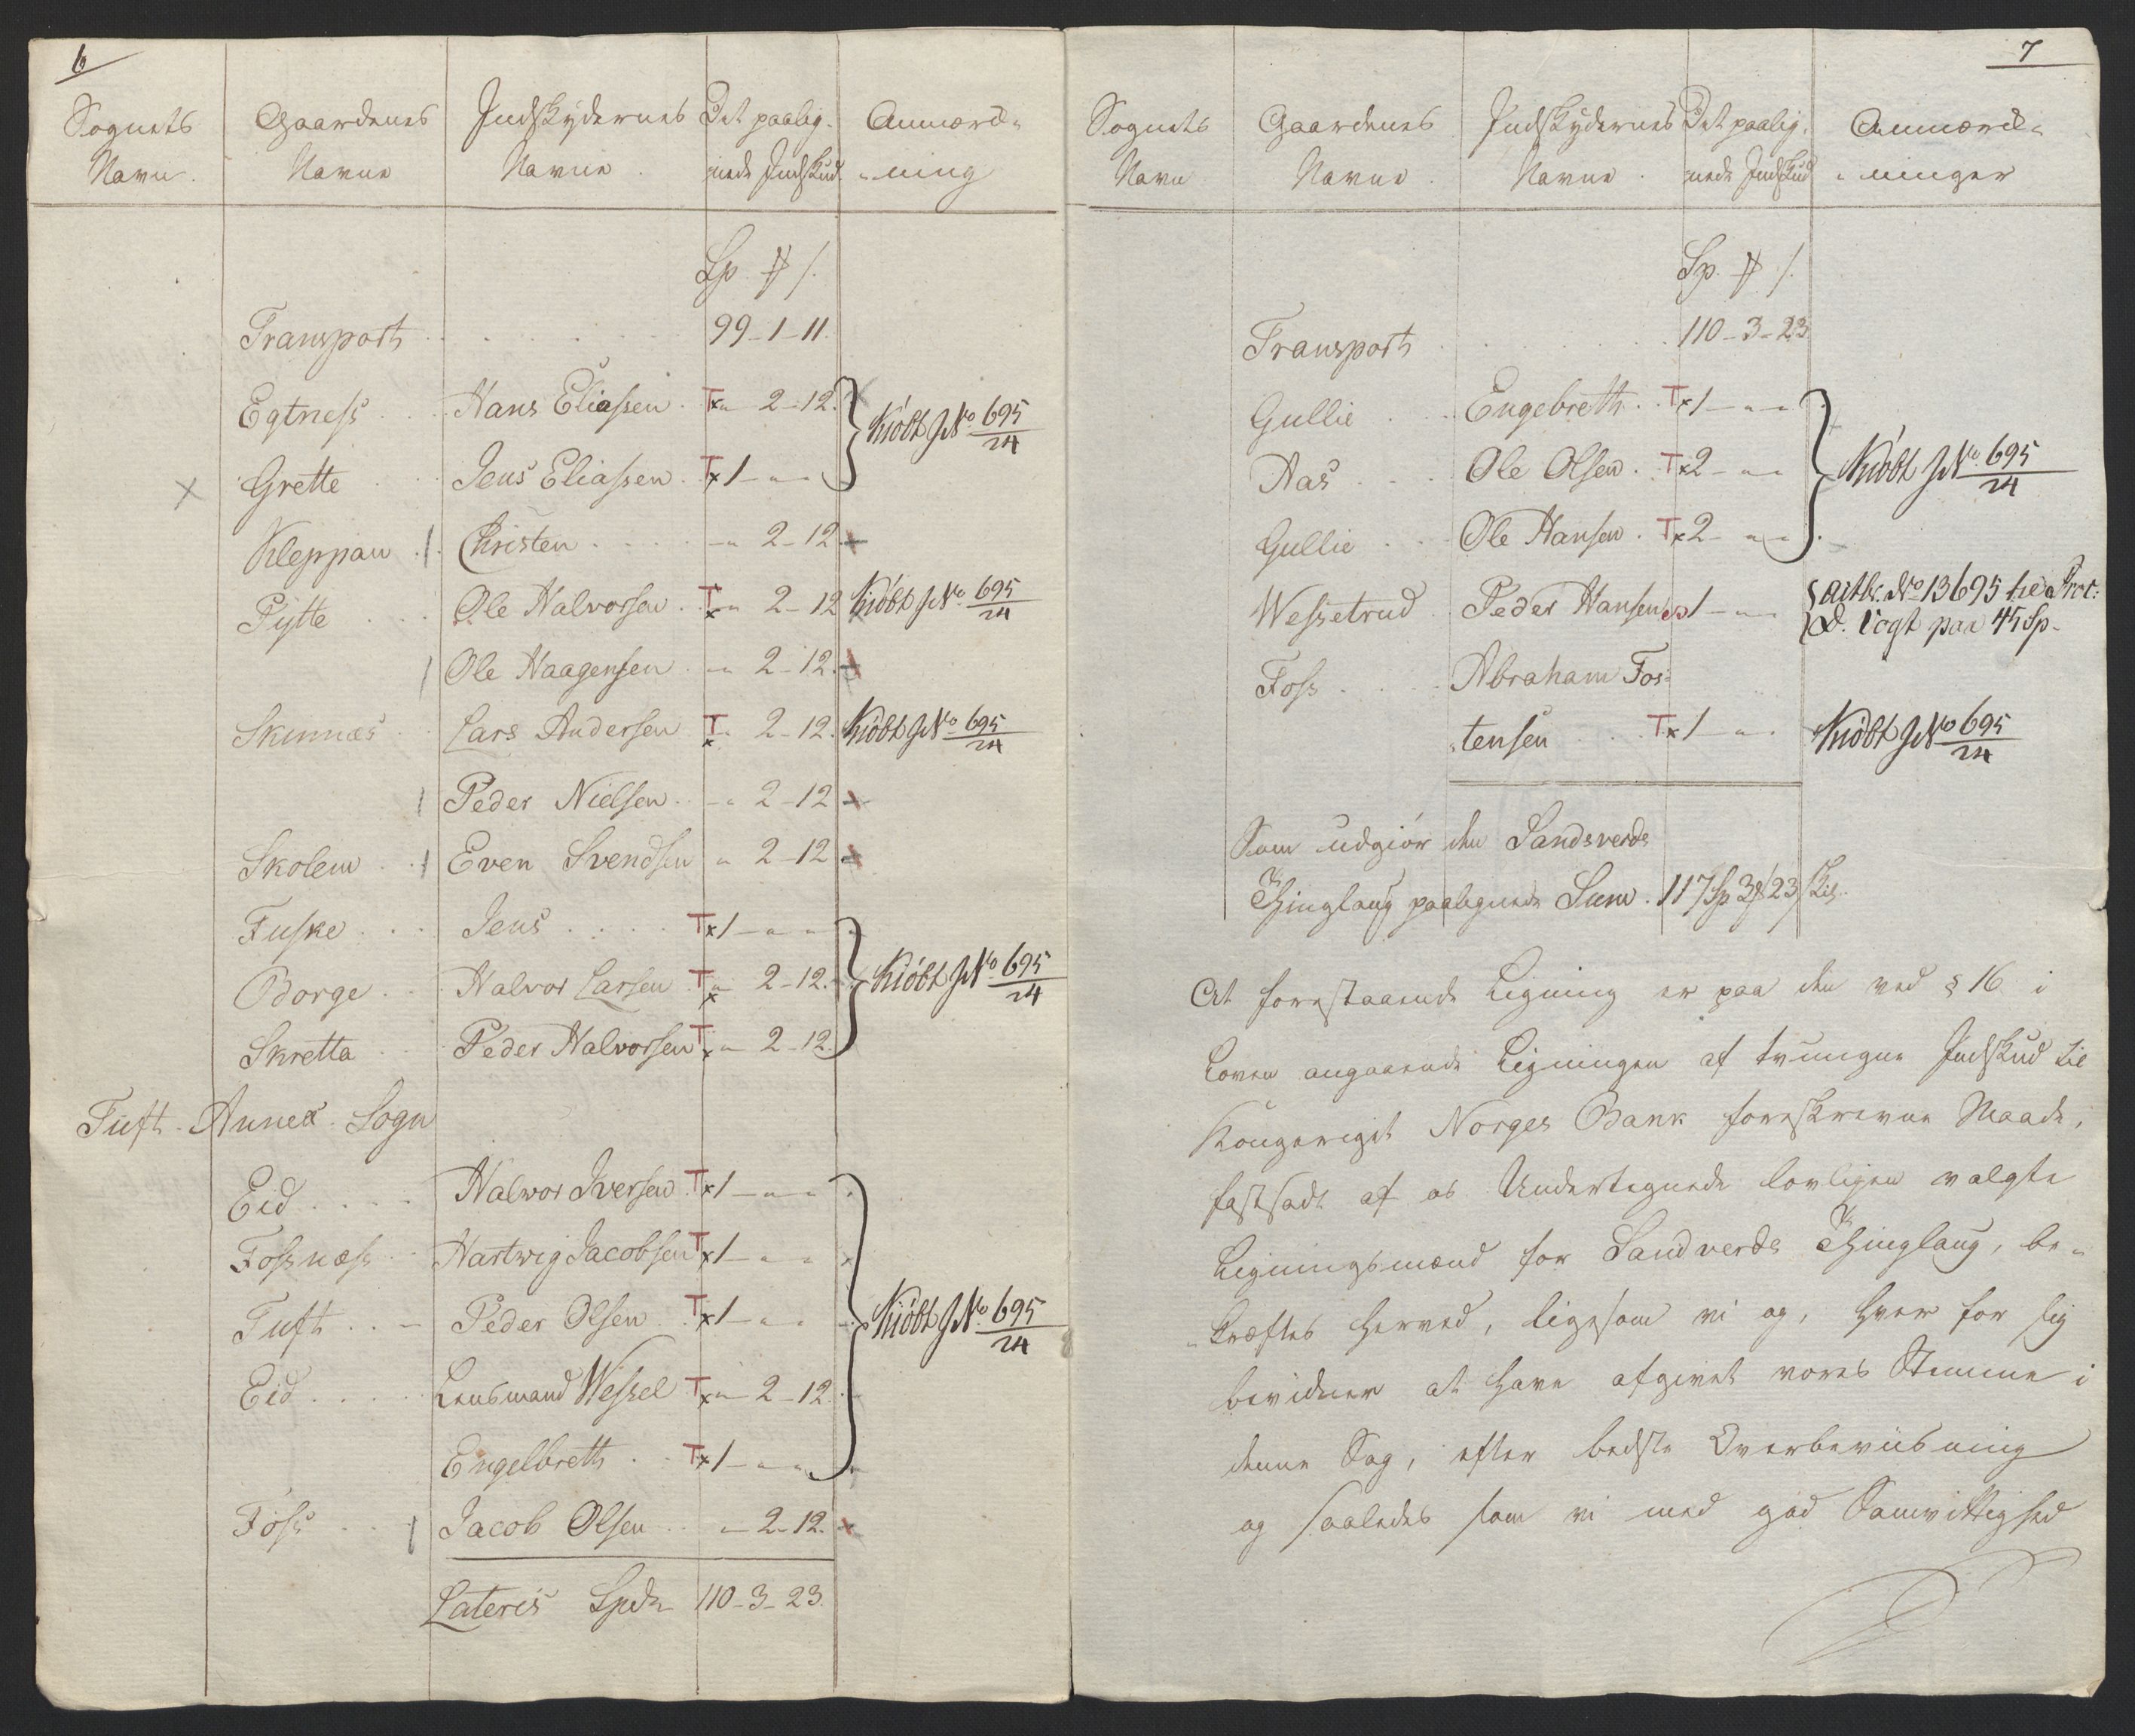 6
Sognets Gaardenes Indskydernes Det paalig- Anmærk-
Navn. Navne Navne. nede Indskud -ning
Sp. ₰ /.
Transport . . . . . . 99-1-11.
Egtness . . Hans Eliassen . Tx„ 2-12. } Kiöbt JNo 695/24
x Grette . . Jens Eliassen . Tx1-„-„
Kleppan . /. Christen . . . . -„ 2-12 +
Pytte . . . Ole Halvorsen . Tx„ 2-12 Kiöbt JNo 695/24
/ Ole Haagensen . -„ 2-12. +
Skinnæs . . Lars Andersen Tx„ 2-12. Kiöbt JNo 695/24
/ Peder Nielsen . . -„ 2-12 +
Skolem . . / Even Svendsen „ 2-12 +
Fuske . . . Jens . . . . . Tx1-„-„
Borge . . . Halvor Larsen Tx„ 2-12. } Kiöbt JNo 695/24
Skretta . . . Peder Halvorsen Tx„ 2-12.
Tuft. Annex. Sogn
Eid . . . . Halvor Iversen . Tx1-„-„
Fossnæss . . Hartwig Jacobsen Tx1-„-„
Tuft . . - Peder Olsen . . Tx1-„-„ } Kiöbt JNo 695/24
Eid . . . . Lensmand Wessel Tx„ 2-12.
Engelbreth . . Tx1-„-„
Foss . . . / Jacob Olsen . . -„ 2-12. +
Lateris Spd 110-3-23.
7
Sognets Gaardenes Indskydernes Det paalig- Anmærk-
Navn Navne. Navne. nede Indskud -ninger
Sp. ₰ /.
Transport . . . . . . . 110-3-23
Gullie . . . Engebreth . . Tx1-„-„
Aas . . . . Ole Olsen . Tx2-„-„ } Kiöbt JNo 695/24
Gullie . . . Ole Hansen . Tx2-„-„
Wessetrud . Peder Hansen 1-„-„ { No 13695 Prot:
D. Vogt paa 45 Sp.
Foss . . . . Abraham Tos-
-tensen . . . Tx1-„-„ Kiöbt JNo 695/24
Som udgiör den Sandsverds
Thinglaug paalignede Sum . 117 Sp 3 ₰ 23 /Kil.
At forestaaende Ligning er paa den ved § 16 i
Loven angaaende Ligningen af tvungne Indskud til
Kongeriget Norges Bank foreskrevne Maade,
fastsadt af os Undertegnede lovligen valgte
Ligningsmænd for Sandverds Thinglaug, be-
-kræftes herved, ligesom vi og, hver for sig
bevidner at have afgivet vores Stemme i
denne Sag, efter bedste Overbeviisning
og saaledes som vi med god Samvittighed